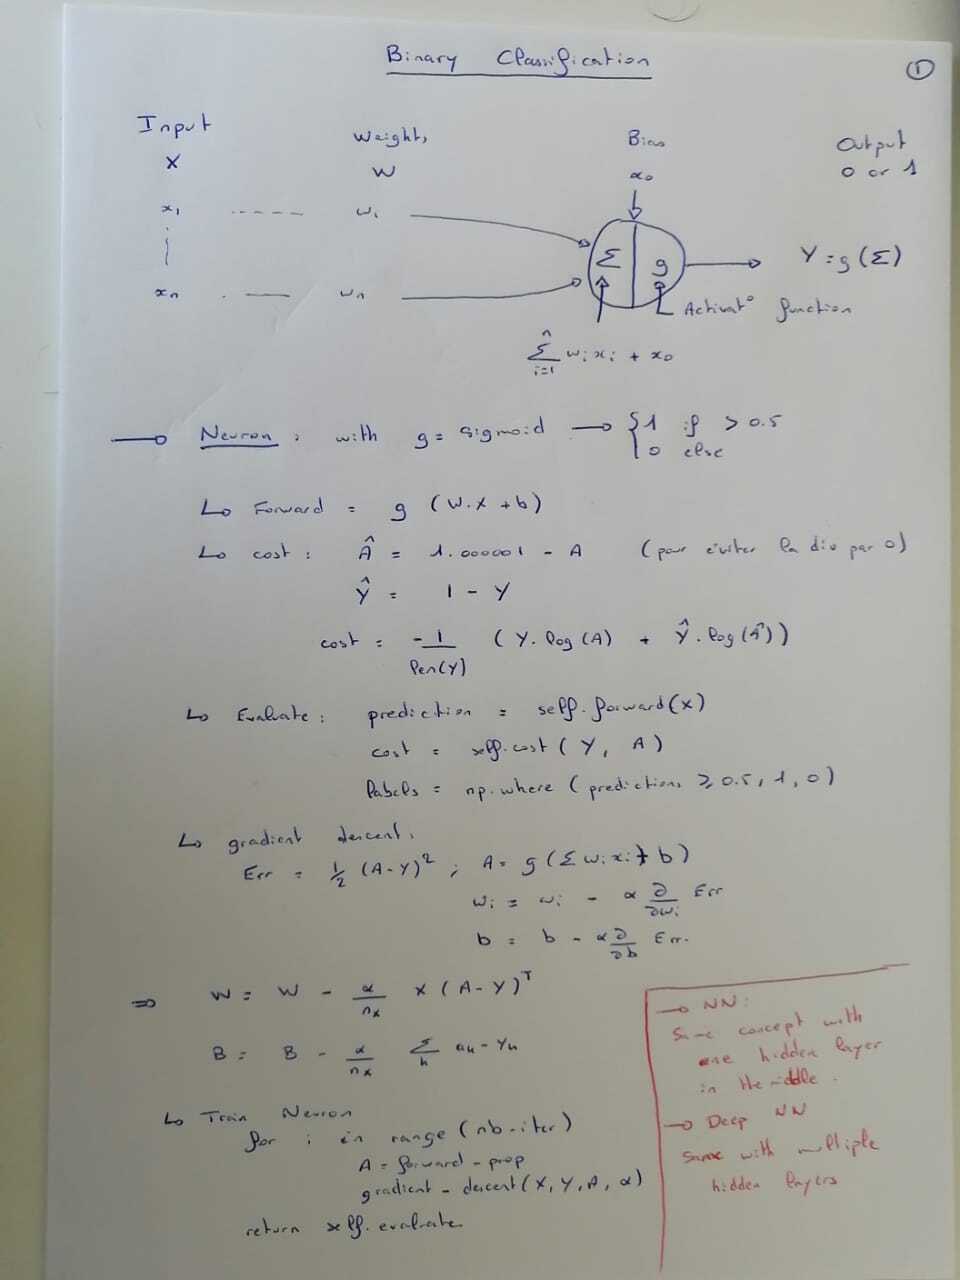 ①
Binary Classification
Input Weights Bias Output
X W x₀ 0 or 1
x₁ ----- w₁ Σ | g Y = g(Σ)
xₙ — wₙ Activat° function
n Σ i=1 wᵢxᵢ + x₀
→ Neuron: with g = sigmoid → { 1 if > 0.5
0 else
↳ Forward = g (W.X + b)
↳ cost: Â = 1.000001 - A (pour éviter la div par 0)
Ŷ = 1 - Y
cost = - 1/len(Y) (Y.log(A) + Ŷ.log(Â))
↳ Evaluate: prediction = self.forward(X)
cost = self.cost(Y, A)
labels = np.where(predictions ≥ 0.5, 1, 0)
↳ gradient descent:
Err = 1/2 (A-Y)² ; A = g(Σ wᵢxᵢ + b)
wᵢ = wᵢ - α ∂/∂wᵢ Err
b = b - α ∂/∂b Err.
⇒ W = W - α/nₓ X (A-Y)ᵀ
B = B - α/nₓ Σₖ aₖ - yₖ
↳ Train Neuron
for i in range (nb-iter)
A = forward-prop
gradient-descent(X, Y, A, α)
return self.evaluate
→ NN:
Same concept with
one hidden layer
in the middle.
→ Deep NN
Same with multiple
hidden layers